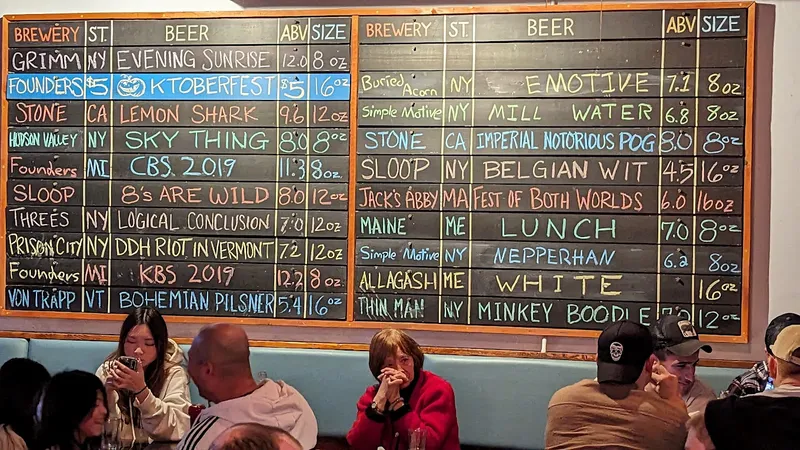 BREWERY ST. BEER ABV SIZE
GRIMM NY EVENING SUNRISE 12.0 8 oz
FOUNDERS $5 OKTOBERFEST $5 16 oz
STONE CA LEMON SHARK 9.6 12 oz
HUDSON VALLEY NY SKY THING 8.0 8 oz
Founders MI CBS 2019 11.3 8 oz
SLOOP NY 8's ARE WILD 8.0 12 oz
THREES NY LOGICAL CONCLUSION 7.0 12 oz
PRISON CITY NY DDH RIOT IN VERMONT 7.2 12 oz
Founders MI KBS 2019 12.2 8 oz
VON TRAPP VT BOHEMIAN PILSNER 5.4 16 oz
BREWERY ST. BEER ABV SIZE
Buried Acorn NY EMOTIVE 7.1 8 oz
Simple Motive NY MILL WATER 6.8 8 oz
STONE CA IMPERIAL NOTORIOUS POG 8.0 8 oz
SLOOP NY BELGIAN WIT 4.5 16 oz
JACK'S ABBY MA FEST OF BOTH WORLDS 6.0 16 oz
MAINE ME LUNCH 7.0 8 oz
Simple Motive NY NEPPERHAN 6.2 8 oz
ALLAGASH ME WHITE 16 oz
THIN MAN NY MINKEY BOODLE 12 oz